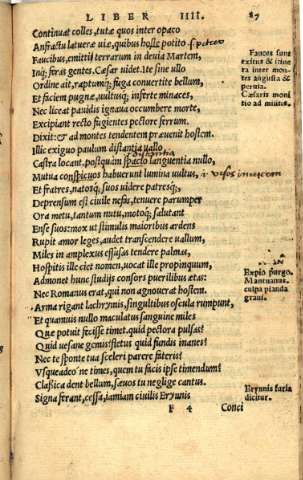 LIBER IIII. 87
Continuat colles, tutæ quos inter opaco
Anfractu latuere uiæ, quibus hoste potito
Faucibus, emitti terrarum in deuia Martem,
Inq; feras gentes. Cæsar uidet. Ite sine ullo
Ordine ait, raptumq; fuga conuertite bellum,
Et faciem pugnæ, uultusq; inferte minaces,
Nec liceat pauidis ignaua occumbere morte,
Excipiant recto fugientes pectore ferrum.
Dixit: & ad montes tendentem præuenit hostem.
Illic exiguo paulum distantia uallo
Castra locant. postquàm spacio languentia nullo,
Mutua conspicuos habuerunt lumina uultus,
Et fratres, natosq; suos uidere patresq;,
Deprensum est ciuile nefas, tenuere parumper
Ora metu, tantum nutu, motoq; salutant
Ense suos: mox ut stimulis maioribus ardens
Rupit amor leges, audet transcendere uallum,
Miles in amplexus effusas tendere palmas,
Hospitis ille ciet nomen, uocat ille propinquum,
Admonet hunc studijs consors puerilibus ætas:
Nec Romanus erat, qui non agnouerat hostem.
Arma rigant lachrymis, singultibus oscula rumpunt,
Et quamuis nullo maculatus sanguine miles
Quæ potuit fecisse timet. quid pectora pulsas?
Quid uesane gemis? fletus quid fundis inanes?
Nec te sponte tua sceleri parere fateris?
Vsqueadeo ne times, quem tu facis ipse timendum?
Classica dent bellum, sæuos tu neglige cantus.
Signa ferant, cessa, iamiam ciuilis Erynnis
F 4 Conci
Fauces sunt
exitus & itine
ra inter mon=
tes angusta &
peruia.
Cæsaris moni
tio ad milites.
Expio purgo.
Mantuanus.
culpa pianda
graui.
Erynnis furia
dicitur.